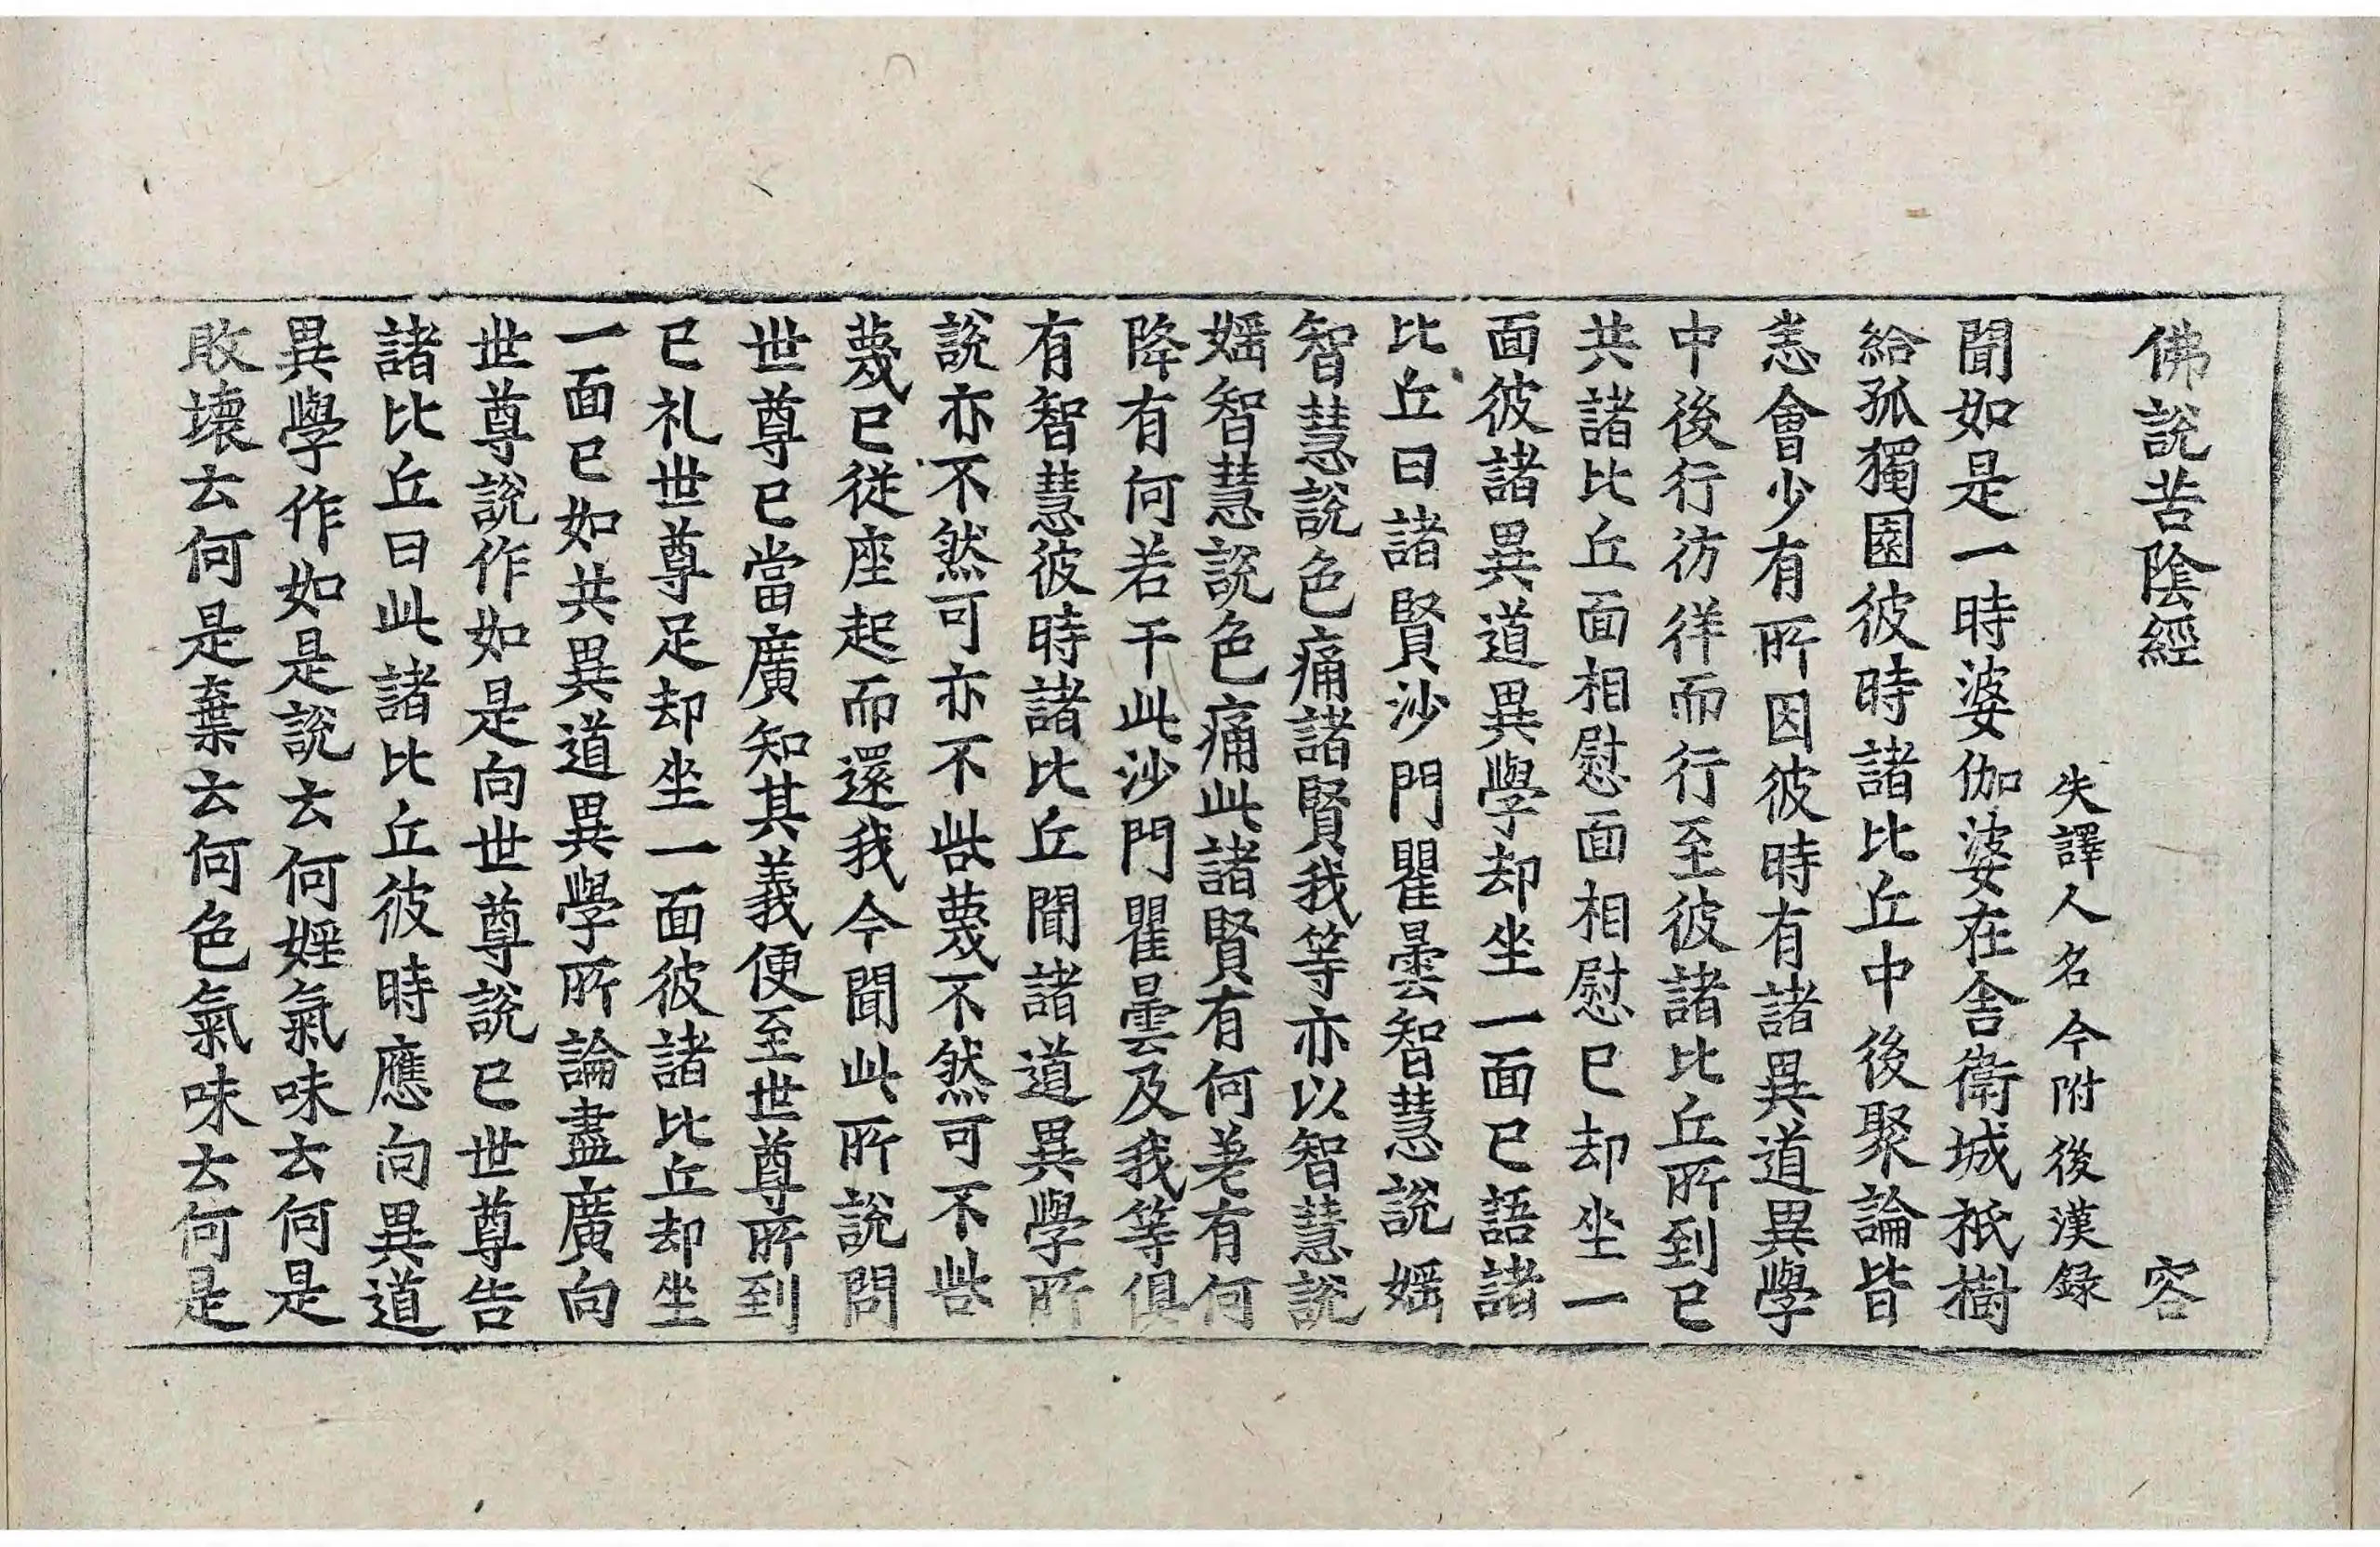 佛說苦陰經 容
失譯人名今附後漢録
聞如是一時婆伽婆在舍衛城祇樹
給孤獨園彼時諸比丘中後聚論皆
恚會少有所因彼時有諸異道異學
中後行彷徉而行至彼諸比丘所到已
共諸比丘面相慰面相慰已却坐一
面彼諸異道異學却坐一面已語諸
比丘曰諸賢沙門瞿曇智慧說婬
智慧說色痛諸賢我等亦以智慧說
婬智慧說色痛此諸賢有何差有何
降有何若干此沙門瞿曇及我等俱
有智慧彼時諸比丘聞諸道異學所
說亦不然可亦不呰蔑不然可不呰
蔑已從座起而還我今聞此所說問
世尊已當廣知其義便至世尊所到
已礼世尊足却坐一面彼諸比丘却坐
一面已如共異道異學所論盡廣向
世尊說作如是向世尊說已世尊告
諸比丘曰此諸比丘彼時應向異道
異學作如是說云何婬氣味云何是
敗壞云何是棄云何色氣味云何是